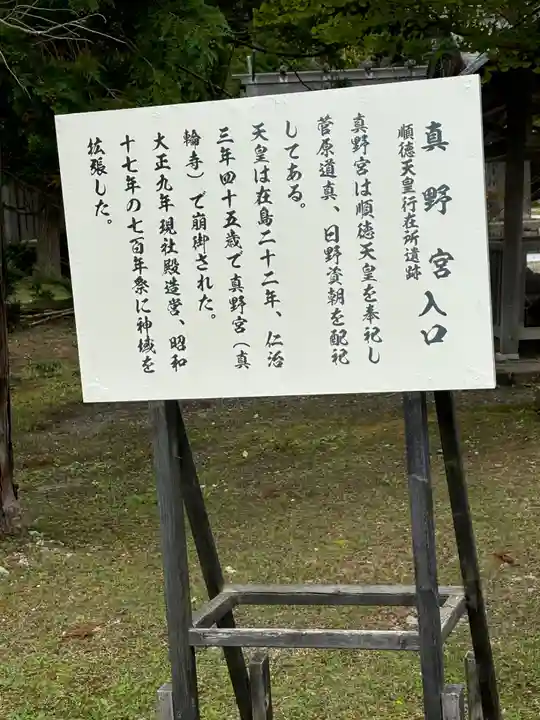 真野宮入口
順徳天皇行在所遺跡
真野宮は順徳天皇を奉祀し
菅原道真、日野資朝を配祀
してある。
天皇は在島二十二年、仁治
三年四十五歳で真野宮(真
輪寺)で崩御された。
大正九年現社殿造営、昭和
十七年の七百年祭に神域を
拡張した。